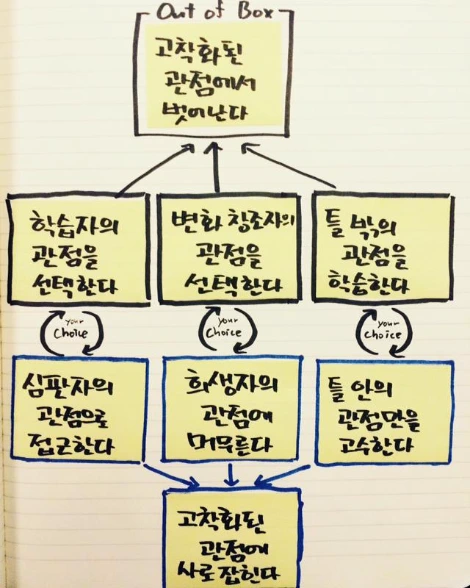 Out of Box
고착화된
관점에서
벗어난다
학습자의
관점을
선택한다
변화 창조자의
관점을
선택한다
틀 밖의
관점을
학습한다
your
Choice
your
Choice
your
choice
심판자의
관점으로
접근한다
희생자의
관점에
머무른다
틀 안의
관점만을
고수한다
고착화된
관점에
사로잡힌다